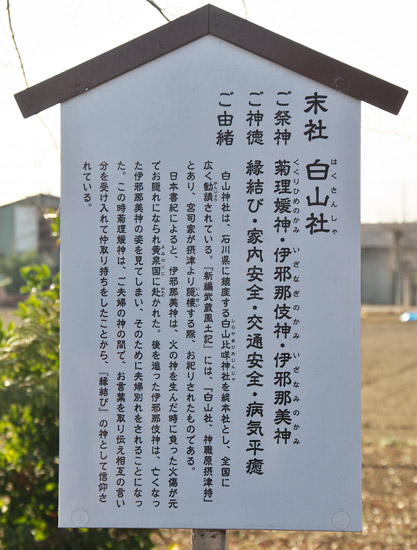 末社 白山社
はくさんしゃ
ご祭神 菊理媛神・伊邪那伎神・伊邪那美神
くくりひめのかみ いざなぎのかみ いざなみのかみ
ご神徳 縁結び・家内安全・交通安全・病気平癒
ご由緒
白山神社は、石川県に鎮座する白山比咩神社を総本社とし、全国に
しらやまひめじんじゃ
広く勧請されている。『新編武蔵風土記』には、「白山社、神職原摂津持」
かんじょう
とあり、宮司家が摂津より隠棲する際、お祀りされたものである。
いんせい
日本書紀によると、伊邪那美神は、火の神を生んだ時に負った火傷が元
でお隠れになられ黄泉国に赴かれた。後を追った伊邪那伎神は、亡くなっ
よみのくに
た伊邪那美神の姿を見てしまい、そのために夫婦別れをされることになっ
た。この時菊理媛神は、ご夫婦の神の間で、お言葉を取り伝え相互の言い
分を受け入れて仲取り持ちをしたことから、『縁結び』の神として信仰さ
れている。